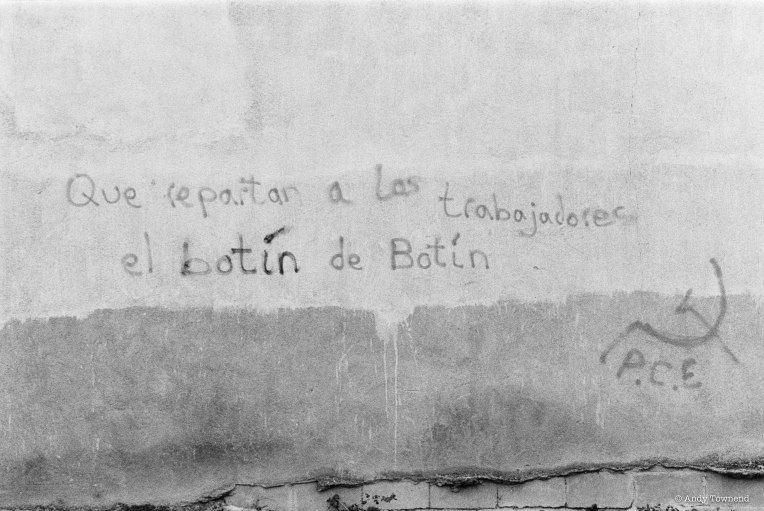 Que repartan a los trabajadores
el botín de Botín
P.C.E
© Andy Townend